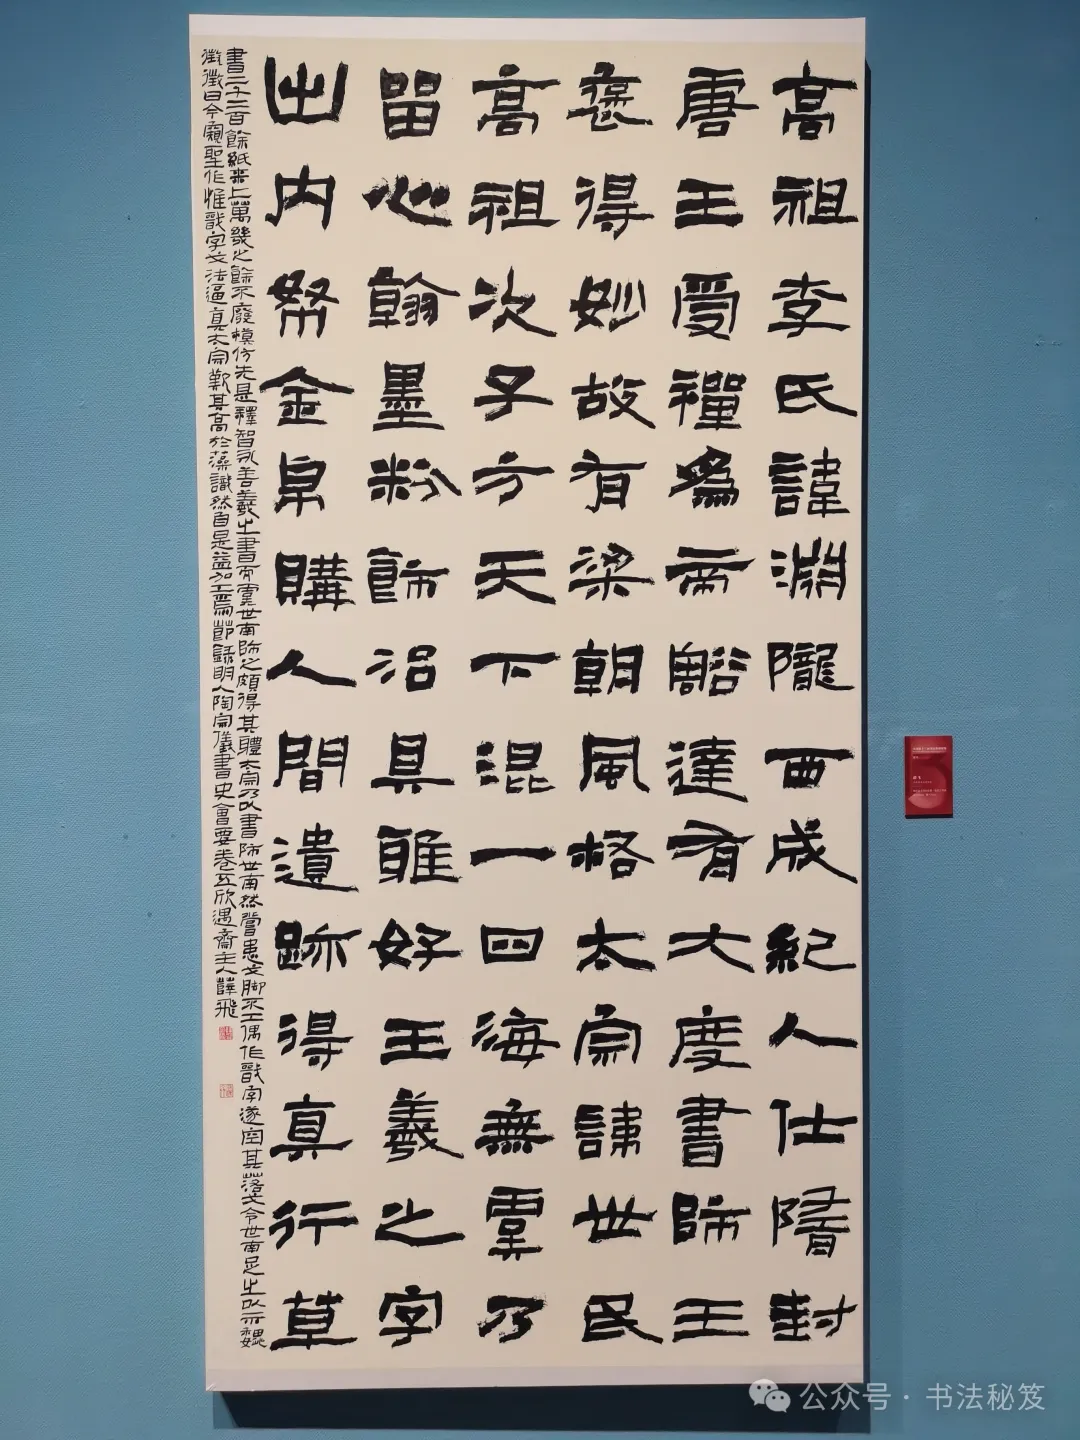 高祖李氏諱淵隴西成紀人仕隋封
唐王受禪為帝豁達有大度書師王
褒得妙故有梁朝風格太宗諱世民
高祖次子方天下混一四海無虞乃
留心翰墨粉飾治具雅好王羲之字
出內帑金帛購人間遺跡得真行草
書二千二百餘紙來上萬幾之餘不廢模仿先是釋智永善羲之書而虞世南師之頗得其體太宗乃以書師世南然嘗患戈脚不工偶作戩字遂空其落戈令世南足之以示魏
徵徵曰今窺聖作惟戩字戈法逼真太宗歎其高於藻識然自是益加工焉節錄明人陶宗儀書史會要卷五欣遇齋主人薛飛
公众号·书法秘笈